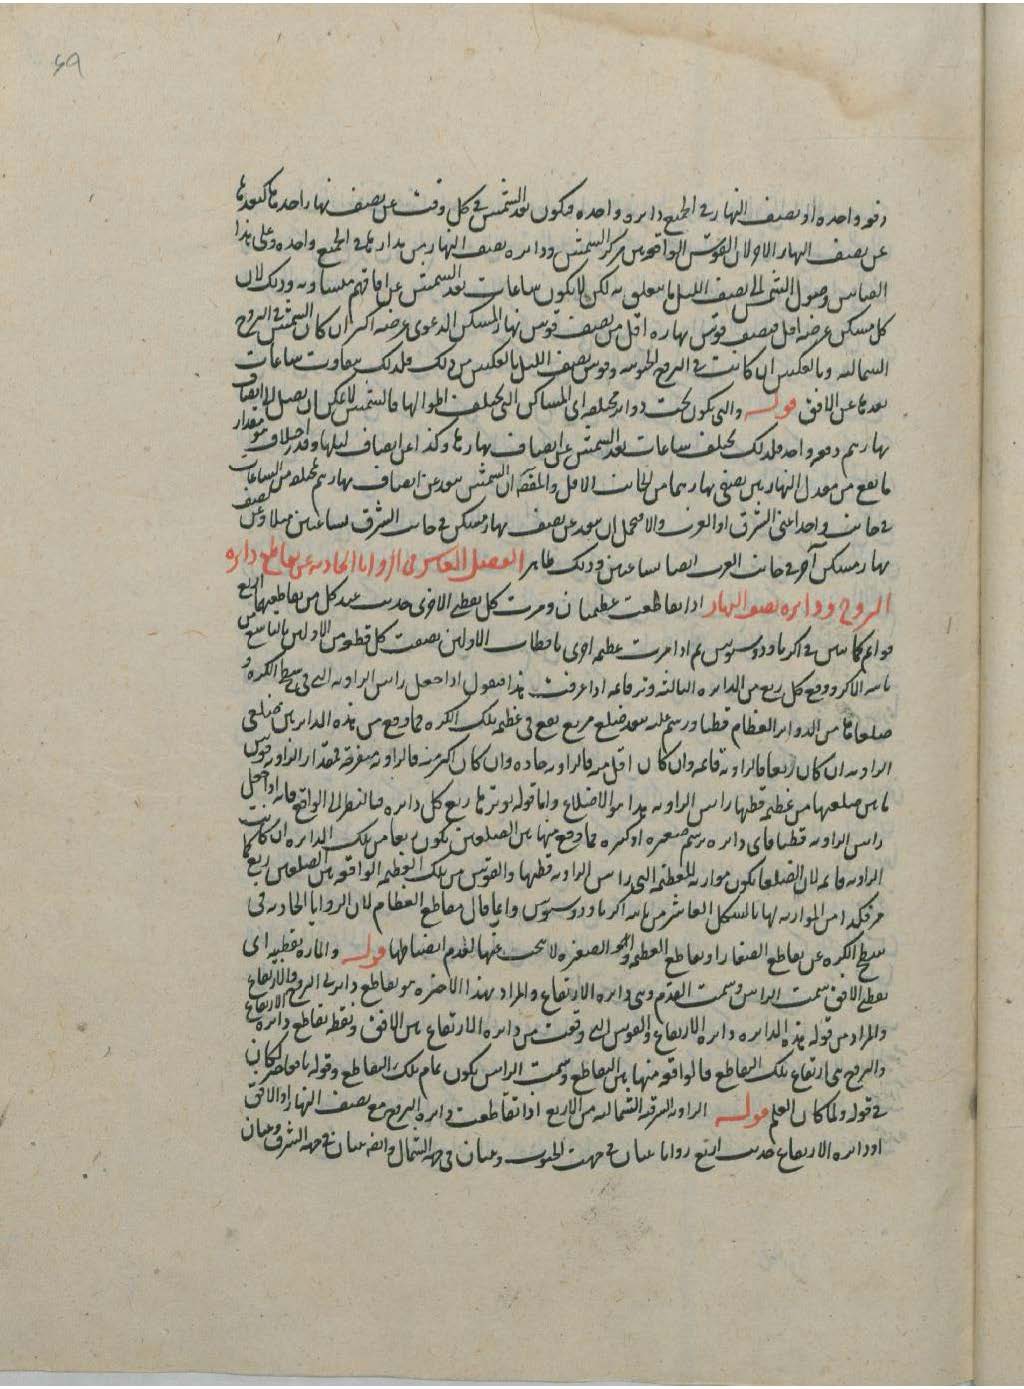 ٤٩
دفعة واحدة او نصف النهار في الجميع دايرة واحدة فيكون بعد الشمس في كل وقت عن نصف نهار احدها كبعدها
عن نصف النهار الاخر لان القوس الواقعة بين مركز الشمس ودايرة نصف النهار من مدارها في الجميع واحدة وعلى هذا
القياس وصول الشمس الى نصف الليل وما يتعلق به لكن لا يكون ساعات بعد الشمس عن افاقهم متساوية وذلك لان
كل مسكن عرضه اقل فنصف قوس نهاره اقل من نصف قوس نهار المسكن الذي عرضه اكثر ان كان الشمس في البروج
الشمالية وبالعكس ان كانت في البروج الجنوبية وقوس نصف الليل بالعكس من ذلك فلذلك يتفاوت ساعات
بعدها عن الافق قوله والتي يكون تحت دواير مختلفة اي المساكن التي تختلف اطوالها فالشمس لا يمكن ان يصل الى انصاف
نهارهم دفعة واحدة فلذلك يختلف ساعات بعد الشمس عن انصاف نهارها وكذا عن انصاف ليلها وقدر اختلاف هو مقدار
ما يقع من معدل النهار بين نصفي نهارهما من الجانب الاقل والمقصد ان الشمس يبعد عن انصاف نهارهم بمختلف من الساعات
في جانب واحد اعني الشرق او الغرب والا فيحتمل ان يبعد عن نصف نهار مسكن في جانب الشرق لساعتين مثلا وعن نصف
نهار مسكن آخر في جانب الغرب ايضا بساعتين وذلك ظاهر الفصل العاشر في الزوايا الحادثة عن تقاطع دايرة
البروج ودايرة نصف النهار اذا تقاطعت عظيمتان ومرت كل بقطبي الاخرى حدث عند كل من تقاطعيهما اربع
قوايم كما تبين في اكر ثاوذوسيوس ثم اذا مرت عظيمة اخرى باقطاب الاولين نصفت كل قطعة من الاولين بالتاسع من
ثانية الاكر ووقع كل ربع من الدايرة الثالثة وتر قائمة اذا عرفت هذا فنقول اذا جعل راس الزاوية التي في بسيط الكرة و
ضلعاها من الدواير العظام قطبا ورسم عليه ببعد ضلع مربع يقع في عظيمة تلك الكرة فما وقع من هذه الدايرة بين ضلعي
الزاوية ان كان ربعا فالزاوية قائمة وان كان اقل منه فالزاوية حادة وان كان اكثر منه فالزاوية منفرجة فمقدار الزاوية قوس
ما بين ضلعيها من عظيمة قطبها راس الزاوية هذا هو الاصطلاح واما قوله يوترها ربع كل دايرة فبالنظر الى الواقع فانه اذا جعل
راس الزاوية قطبا فاي دايرة يرسم صغيرة او كبيرة فما وقع منها بين الضلعين يكون ربعا من تلك الدايرة ان كانت
الزاوية قائمة لان الصغيرة يكون موازية للعظيمة التي راس الزاوية قطبها والقوس من تلك العظيمة الواقعة بين الضلعين ربع كما
مر فكذا من الموازية لها بالشكل العاشر من ثانية اكر ثاوذوسيوس وانما قال تقاطع العظام لان الزوايا الحادثة في
سطح الكرة عن تقاطع الصغار او تقاطع العظيمة والصغيرة لا يبحث عنها لعدم انضباطها قوله والمارة بقطبيه اي
بقطبي الافق سمت الراس وسمت القدم وهي دايرة الارتفاع والمراد بهذا الاخيرة هو تقاطع دايرتي البروج والارتفاع
والمراد من قوله هذه الدايرة دايرة الارتفاع والقوس التي وقعت من دايرة الارتفاع بين الافق ونقطة تقاطع دايرة الارتفاع
والبروج هي ارتفاع تلك التقاطع فالواقعة منها بين التقاطع وسمت الراس يكون تمام تلك التقاطع وقوله
في قوله ولما كان العلم قوله الزاوية الشرقية الشمالية من الاربع اذا تقاطعت دايرة البروج مع نصف النهار او الافق
او دايرة الارتفاع حدث اربع زوايا ثنتان في جهة الجنوب وثنتان في جهة الشمال وايضا ثنتان في جهة الشرق وثنتان